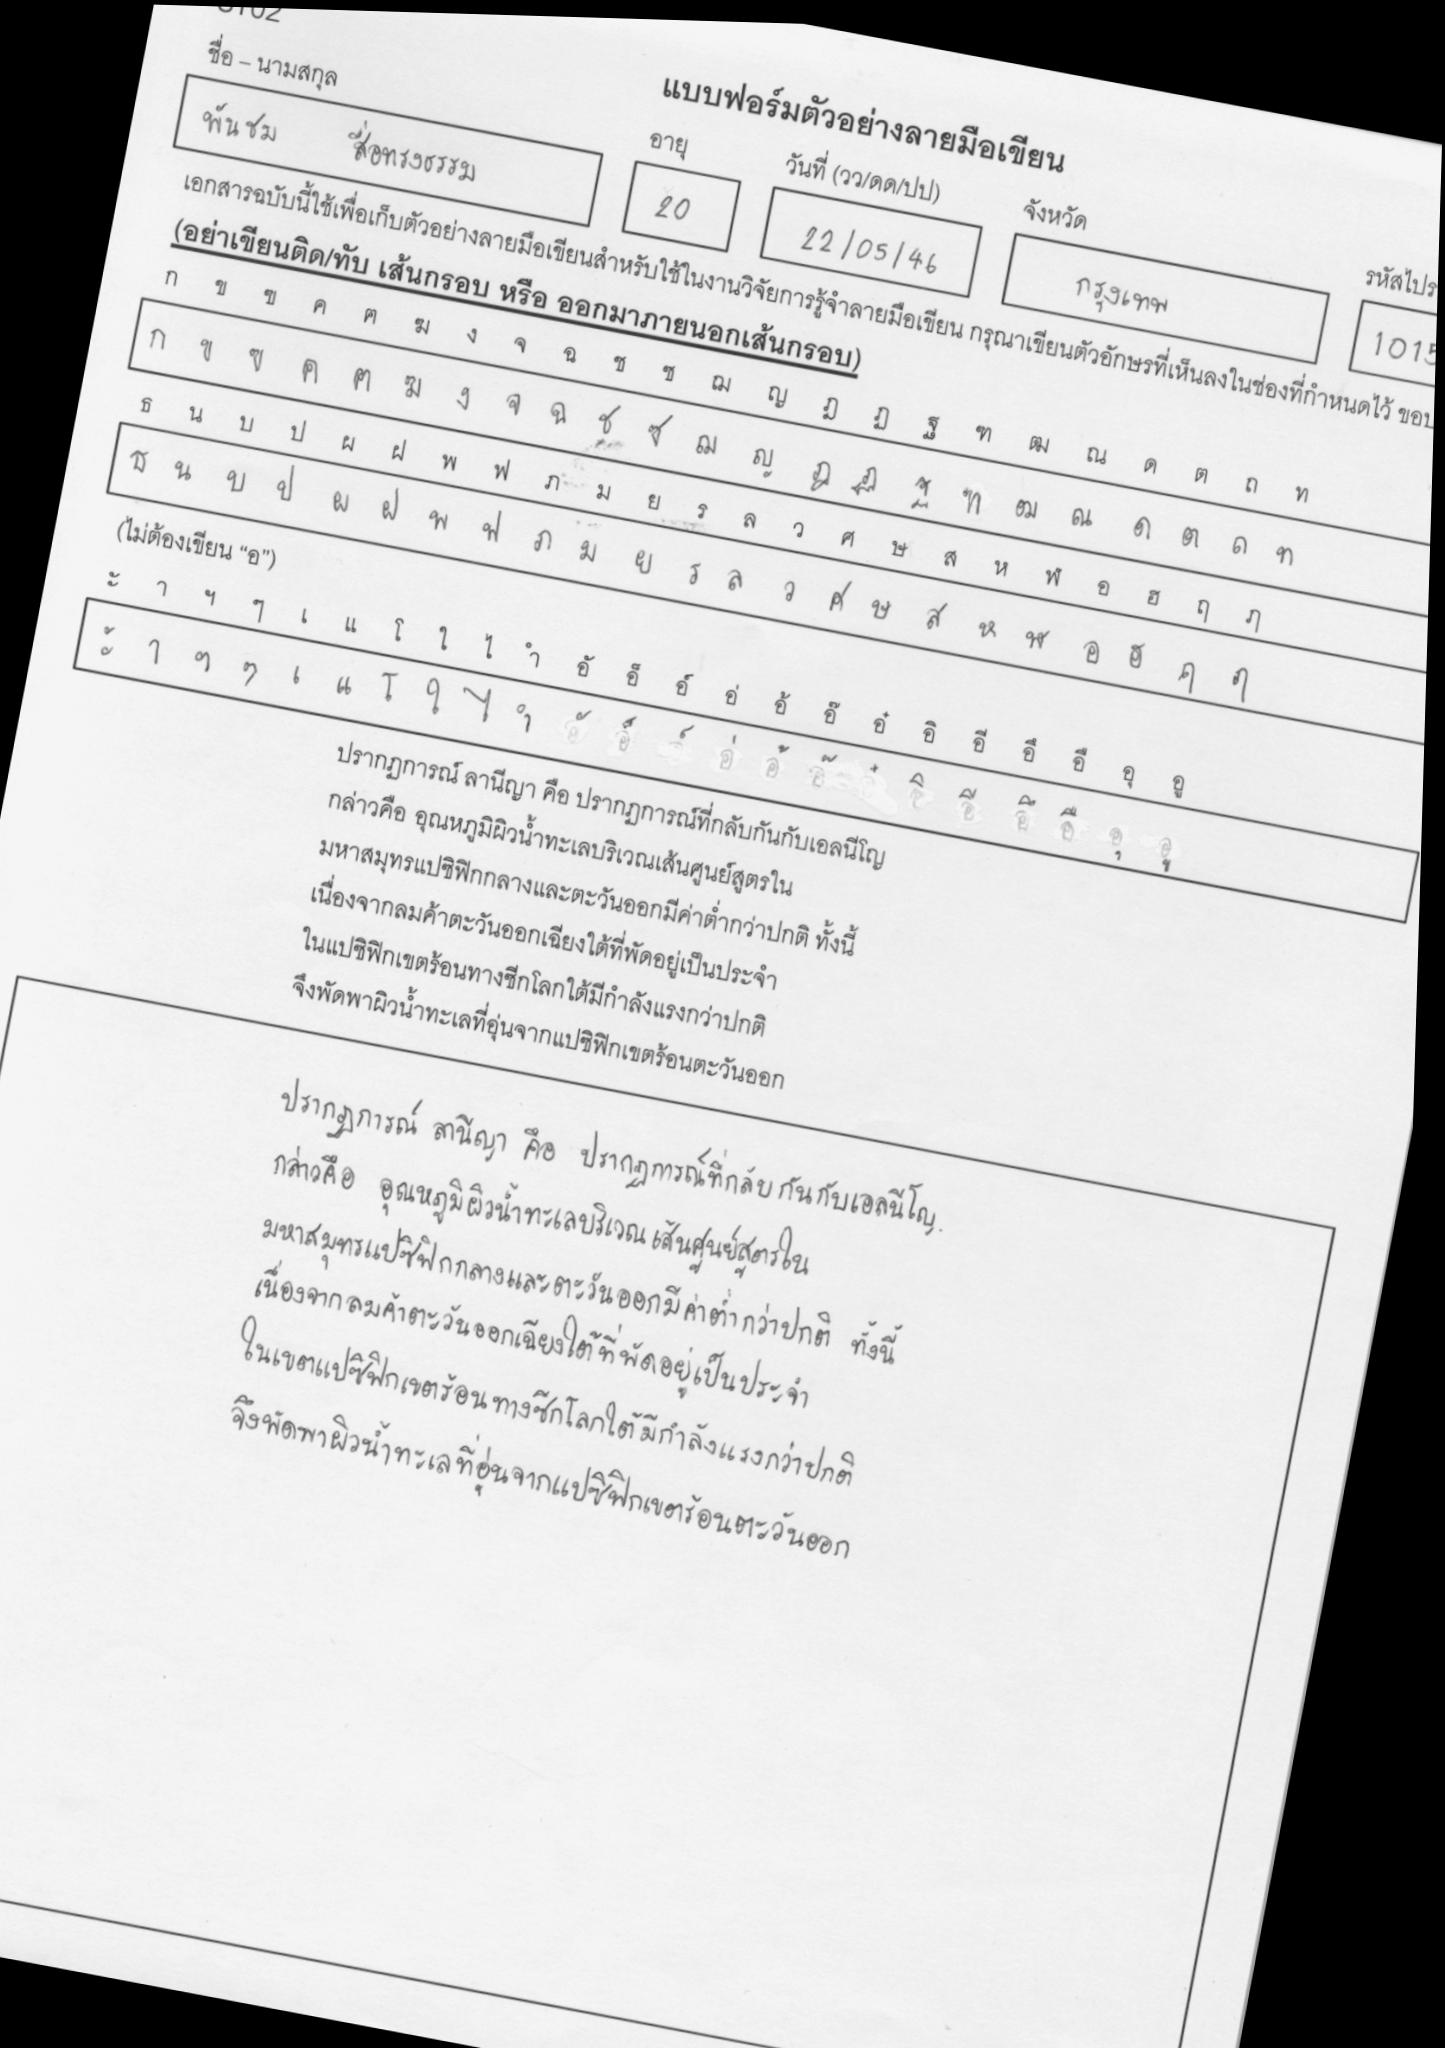 แบบฟอร์มตัวอย่างลายมือเขียน
ชื่อ – นามสกุล อายุ วันที่ (วว/ดด/ปป) จังหวัด
พันชม สื่อทรงธรรม 20 22/05/46 กรุงเทพ
เอกสารฉบับนี้ใช้เพื่อเก็บตัวอย่างลายมือเขียนสำหรับใช้ในงานวิจัยการรู้จำลายมือเขียน กรุณาเขียนตัวอักษรที่เห็นลงในช่องที่กำหนดไว้
(อย่าเขียนติด/ทับ เส้นกรอบ หรือ ออกมาภายนอกเส้นกรอบ)
ก ข ฃ ค ฅ ฆ ง จ ฉ ช ซ ฌ ญ ฎ ฏ ฐ ฑ ฒ ณ ด ต ถ ท
ก ข ฃ ค ฅ ฆ ง จ ฉ ช ซ ฌ ญ ฎ ฏ ฐ ฑ ฒ ณ ด ต ถ ท
ธ น บ ป ผ ฝ พ ฟ ภ ม ย ร ล ว ศ ษ ส ห ฬ อ ฮ ฤ ฦ
ธ น บ ป ผ ฝ พ ฟ ภ ม ย ร ล ว ศ ษ ส ห ฬ อ ฮ ฤ ฦ
(ไม่ต้องเขียน “อ”)
ะ า ฯ ๆ เ แ โ ใ ไ ำ อั อ็ อ์ อ่ อ้ อ๊ อ๋ อิ อี อึ อื อุ อู
ะ า ฯ ๆ เ แ โ ใ ไ ำ อั อ็ อ์ อ่ อ้ อ๊ อ๋ อิ อี อึ อื อุ อู
ปรากฏการณ์ ลานีญา คือ ปรากฏการณ์ที่กลับกันกับเอลนีโญ
กล่าวคือ อุณหภูมิผิวน้ำทะเลบริเวณเส้นศูนย์สูตรใน
มหาสมุทรแปซิฟิกกลางและตะวันออกมีค่าต่ำกว่าปกติ ทั้งนี้
เนื่องจากลมค้าตะวันออกเฉียงใต้ที่พัดอยู่เป็นประจำ
ในแปซิฟิกเขตร้อนทางซีกโลกใต้มีกำลังแรงกว่าปกติ
จึงพัดพาผิวน้ำทะเลที่อุ่นจากแปซิฟิกเขตร้อนตะวันออก
ปรากฏการณ์ ลานีญา คือ ปรากฏการณ์ที่กลับกันกับเอลนีโญ.
กล่าวคือ อุณหภูมิผิวน้ำทะเลบริเวณเส้นศูนย์สูตรใน
มหาสมุทรแปซิฟิกกลางและตะวันออกมีค่าต่ำกว่าปกติ ทั้งนี้
เนื่องจากลมค้าตะวันออกเฉียงใต้ที่พัดอยู่เป็นประจำ
ในเขตแปซิฟิกเขตร้อนทางซีกโลกใต้มีกำลังแรงกว่าปกติ
จึงพัดพาผิวน้ำทะเลที่อุ่นจากแปซิฟิกเขตร้อนตะวันออก